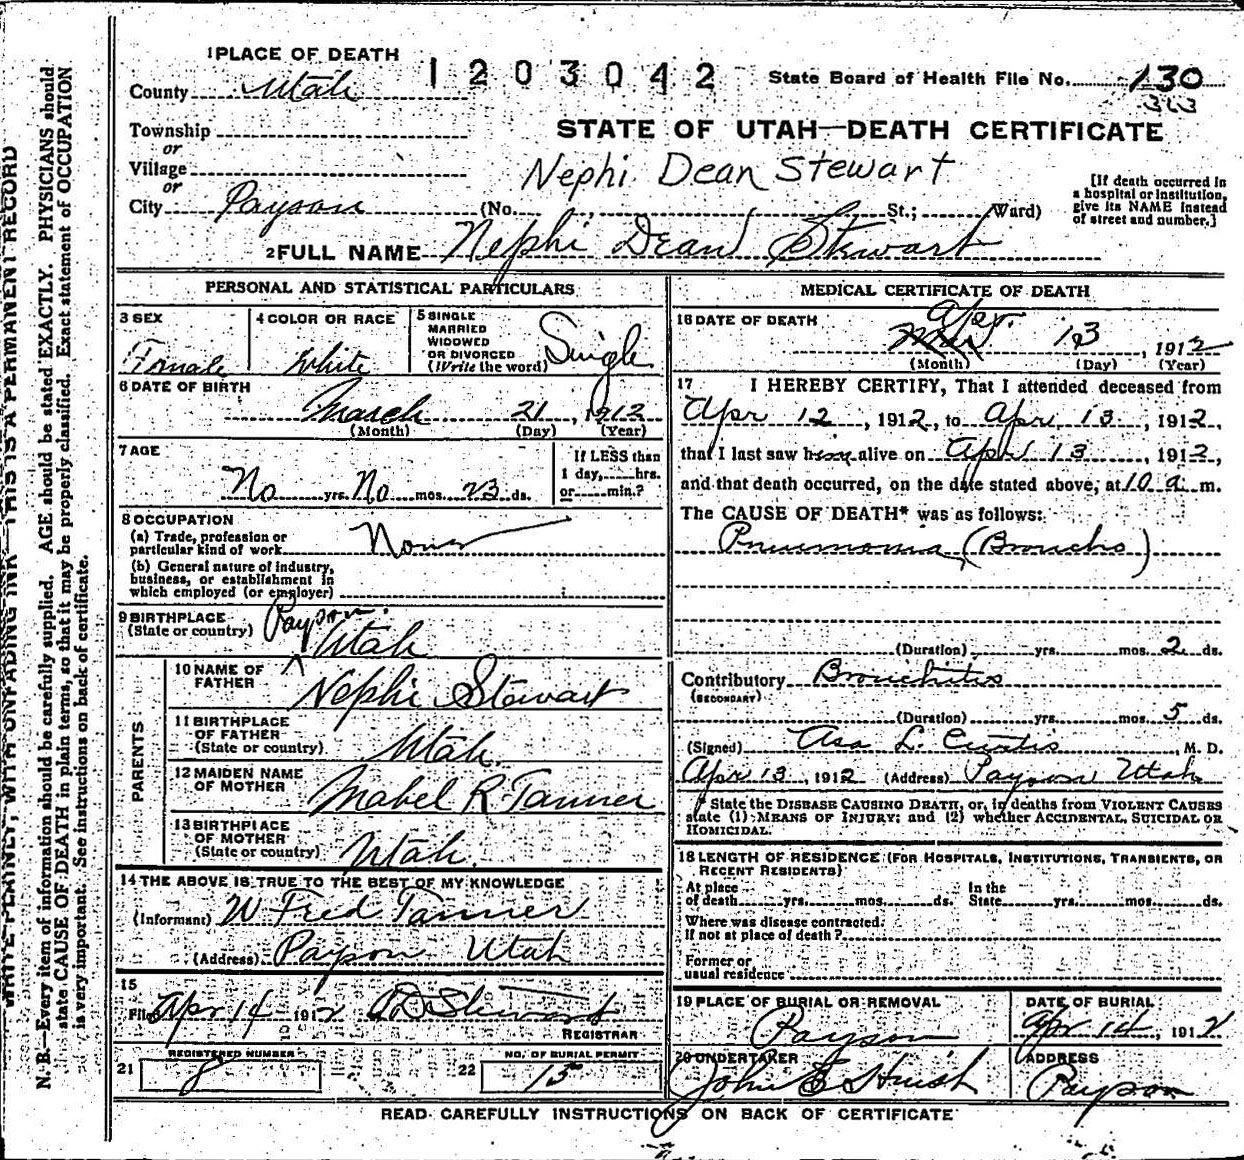 WRITE PLAINLY, WITH UNFADING INK—THIS IS A PERMANENT RECORD
N. B.—Every item of information should be carefully supplied. AGE should be stated EXACTLY. PHYSICIANS should
state CAUSE OF DEATH in plain terms, so that it may be properly classified. Exact statement of OCCUPATION
is very important. See instructions on back of certificate.
1 PLACE OF DEATH
1203042
State Board of Health File No. 130
363
County Utah
Township
or
Village
or
City Payson (No. ; St.; Ward)
STATE OF UTAH—DEATH CERTIFICATE
Nephi Dean Stewart
[If death occurred in
a hospital or institution,
give its NAME instead
of street and number.]
2 FULL NAME Nephi Dean Stewart
PERSONAL AND STATISTICAL PARTICULARS
3 SEX
Female
4 COLOR OR RACE
White
5 SINGLE
MARRIED
WIDOWED
OR DIVORCED
(Write the word) Single
6 DATE OF BIRTH
March 21, 1912
(Month) (Day) (Year)
7 AGE
No yrs. No mos. 23 ds.
If LESS than
1 day, hrs.
or min.?
8 OCCUPATION
(a) Trade, profession or
particular kind of work None
(b) General nature of industry,
business, or establishment in
which employed (or employer)
9 BIRTHPLACE
(State or country) Payson. Utah
PARENTS
10 NAME OF
FATHER Nephi Stewart
11 BIRTHPLACE
OF FATHER
(State or country) Utah.
12 MAIDEN NAME
OF MOTHER Mabel R Tanner
13 BIRTHPLACE
OF MOTHER
(State or country) Utah.
14 THE ABOVE IS TRUE TO THE BEST OF MY KNOWLEDGE
(Informant) W Fred Tanner
(Address) Payson Utah
15
Filed Apr 14 1912 Stewart
REGISTRAR
21 REGISTERED NUMBER
8
22 NO. OF BURIAL PERMIT
15
MEDICAL CERTIFICATE OF DEATH
16 DATE OF DEATH
Apr. 13, 1912
(Month) (Day) (Year)
17 I HEREBY CERTIFY, That I attended deceased from
Apr 12, 1912, to Apr 13, 1912,
that I last saw him alive on Apr 13, 1912,
and that death occurred, on the date stated above, at 10 a. m.
The CAUSE OF DEATH* was as follows:
Pneumonia (Broncho)
(Duration) yrs. mos. 2 ds.
Contributory Bronchitis
(SECONDARY)
(Duration) yrs. mos. 5 ds.
(Signed) Asa L. Curtis, M. D.
Apr 13, 1912 (Address) Payson Utah
* State the DISEASE CAUSING DEATH, or, in deaths from VIOLENT CAUSES
state (1) MEANS OF INJURY; and (2) whether ACCIDENTAL, SUICIDAL OR
HOMICIDAL.
18 LENGTH OF RESIDENCE (FOR HOSPITALS, INSTITUTIONS, TRANSIENTS, OR
RECENT RESIDENTS)
At place
of death yrs. mos. ds.
In the
State yrs. mos. ds.
Where was disease contracted.
If not at place of death?
Former or
usual residence
19 PLACE OF BURIAL OR REMOVAL
Payson
DATE OF BURIAL
Apr 14, 1912
20 UNDERTAKER
John E Huish
ADDRESS
Payson
READ CAREFULLY INSTRUCTIONS ON BACK OF CERTIFICATE